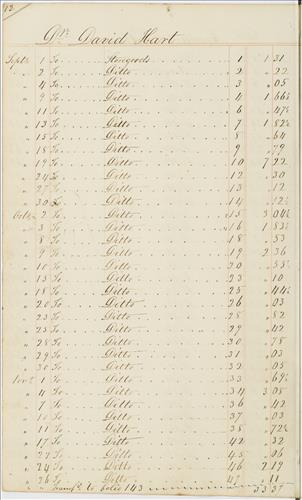 12
Dr. David Hart
Sept. 1 To Storegoods 1 1 31
" 2 To Ditto 2 " 22
" 4 To Ditto 3 " 05
" 9 To Ditto 4 1 66½
" 11 To Ditto 6 " 47½
" 13 To Ditto 7 1 82½
" 15 To Ditto 8 " 64
" 18 To Ditto 9 " 79
" 19 To Ditto 10 7 22
" 24 To Ditto 12 " 30
" 27 To Ditto 13 " 12
" 30 To Ditto 14 " 12½
2 To Ditto 15 3 04½
" 3 To Ditto 16 1 83
" 8 To Ditto 18 " 53
" 9 To Ditto 19 2 36
" 10 To Ditto 20 "
" 15 To Ditto 23 " 10
" 18 To Ditto 25 " 44½
" 20 To Ditto 26 " 03
" 23 To Ditto 28 " 82
" 25 To Ditto 29 " 42
" 28 To Ditto 30 " 78
" 29 To Ditto 31 " 03
" 30 To Ditto 32 " 05
1 To Ditto 33 " 69½
" 4 To Ditto 34 3 08
" 7 To Ditto 36 " 42
To Ditto 37 " 03
" 11 To Ditto 38 " 72½
" 17 To Ditto 42 " 32
" 22 To Ditto 45 " 06
" 24 To Ditto 46 2 19
" 26 To Ditto " 11
to folio 143 33 37